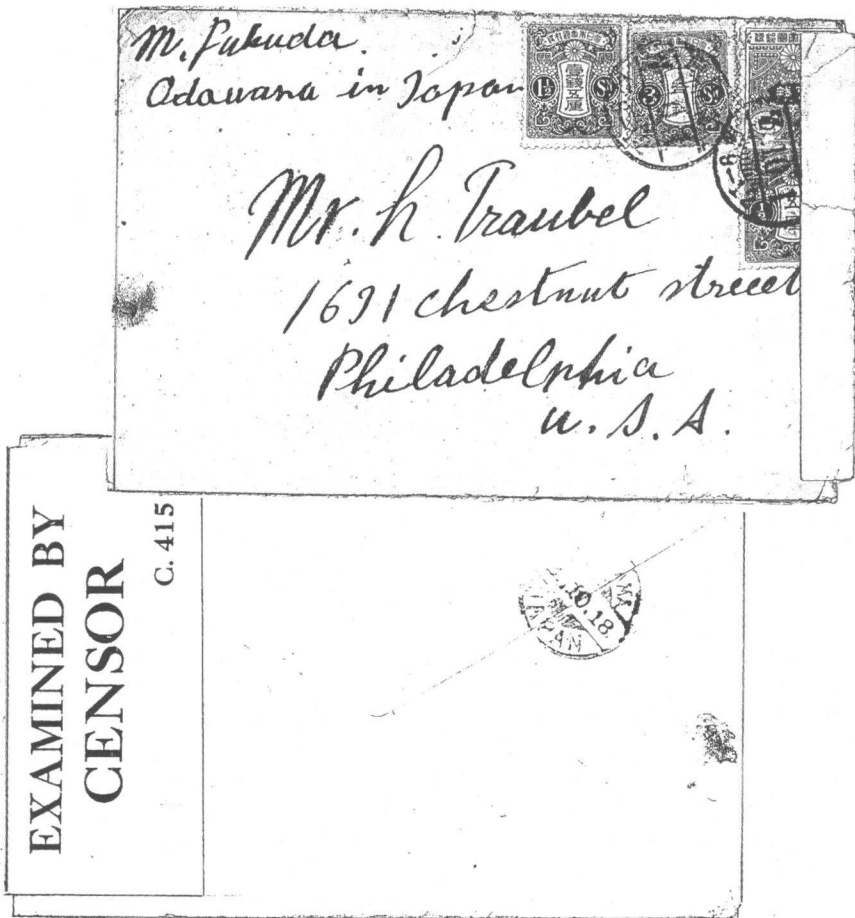 M. Fukuda.
Odawara in Japan
1½ Sn
壹錢五厘
3 Sn
Mr. h. Traubel
1631 chestnut streeet
Philadelphia
U. S. A.
EXAMINED BY
CENSOR
C. 415
10.18
JAPAN